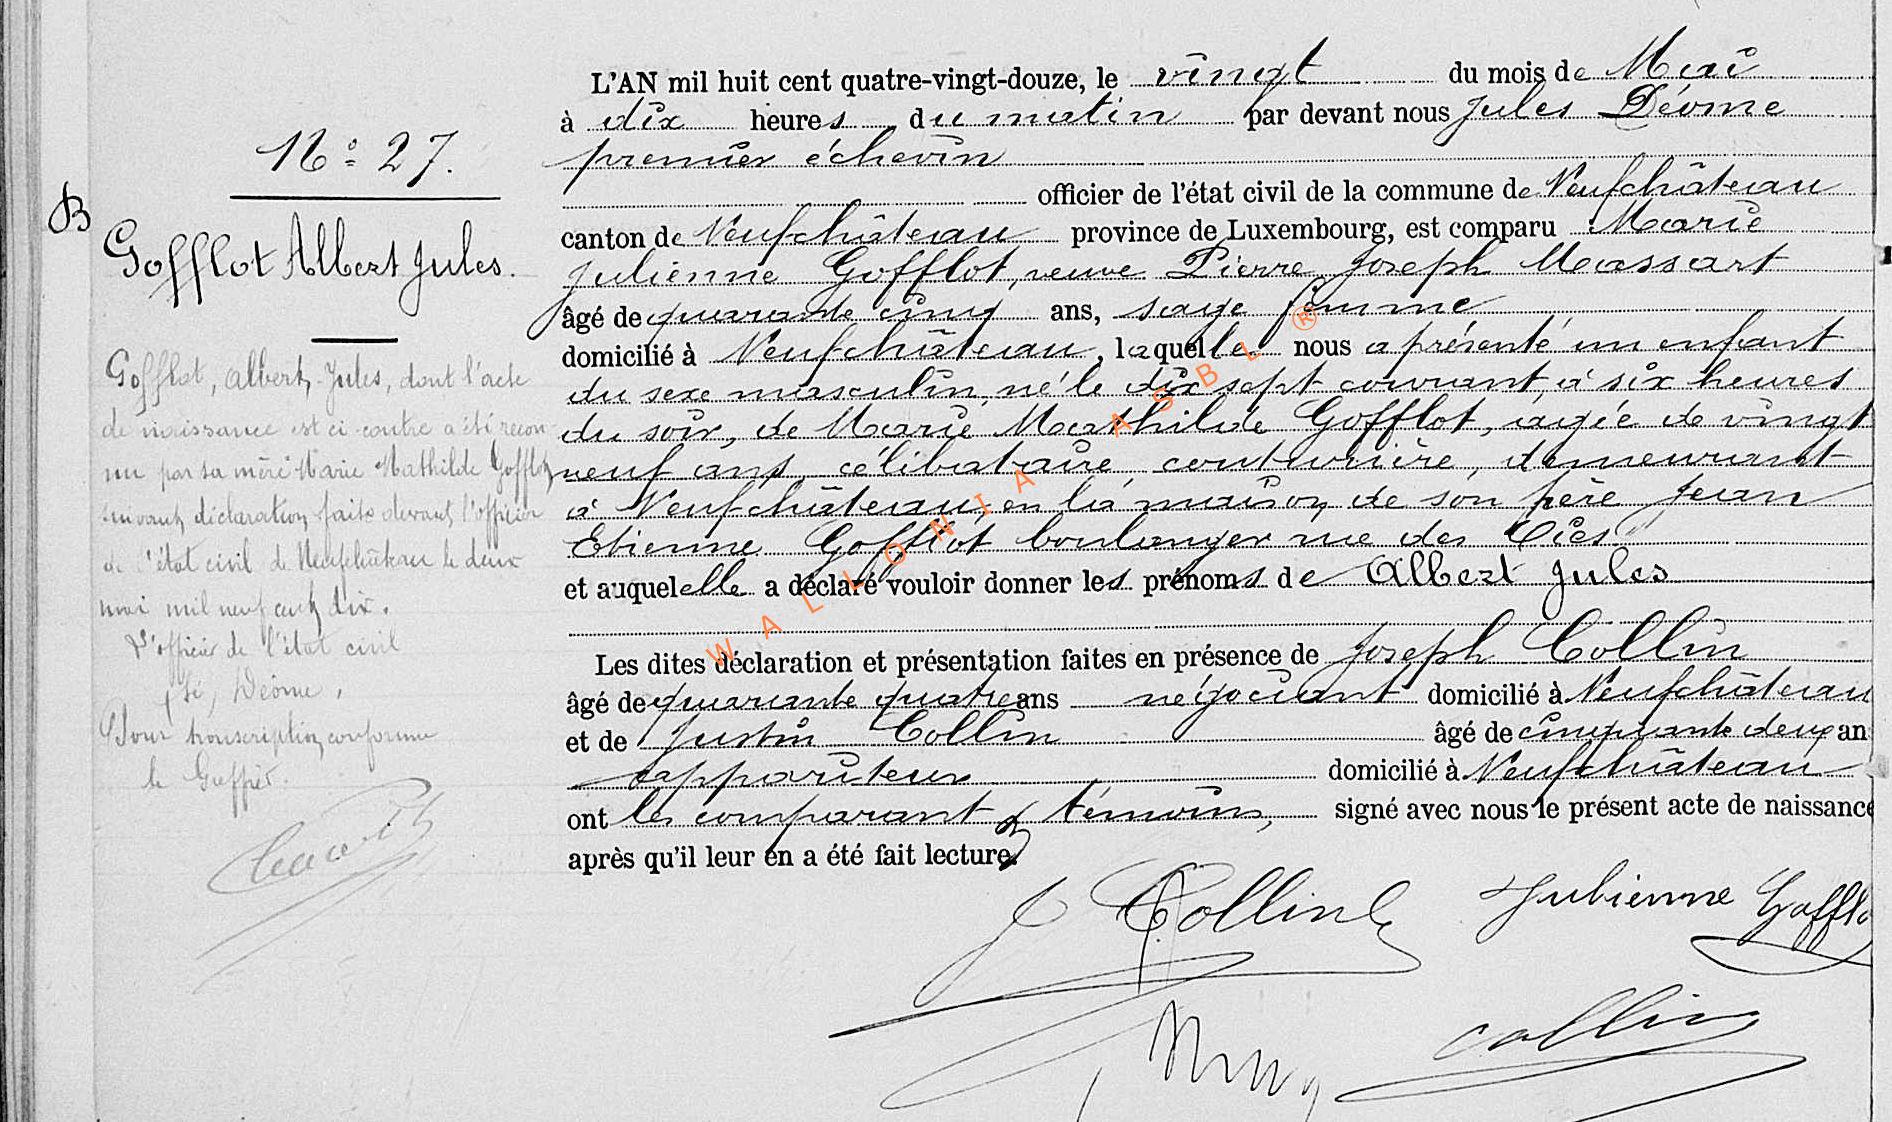 N° 27.
B
Gofflot Albert Jules.
Gofflot, Albert, Jules, dont l'acte
de naissance est ci-contre a été recon-
nu par sa mère Marie Mathilde Gofflot
suivant déclaration faite devant l'officier
de l'état civil de Neufchâteau le deux
mai mil neuf cent dix.
L'officier de l'état civil
(sé) Déome,
Pour transcription conforme
le Greffier.
L'AN mil huit cent quatre-vingt-douze, le vingt du mois de Mai
à dix heures du matin par devant nous Jules Déome
premier échevin
officier de l'état civil de la commune de Neufchâteau
canton de Neufchâteau province de Luxembourg, est comparu Marie
Julienne Gofflot, veuve Pierre Joseph Massart
âgé de quarante cinq ans, sage femme
domicilié à Neufchâteau, laquelle nous a présenté un enfant
du sexe masculin, né le dix sept courant, à six heures
du soir, de Marie Mathilde Gofflot, âgée de vingt
neuf ans, célibataire, couturière, demeurant
à Neufchâteau, en la maison de son père Jean
Etienne Gofflot boulanger rue des
et auquel elle a déclaré vouloir donner les prénoms de Albert Jules
Les dites déclaration et présentation faites en présence de Joseph Collin
âgé de quarante quatre ans négociant domicilié à Neufchâteau
et de Justin Collin âgé de cinquante deux an
appariteur domicilié à Neufchâteau
ont les comparant & témoins, signé avec nous le présent acte de naissance
après qu'il leur en a été fait lecture.
J Collin Julienne Gofflo
collin
WALLONIA ASBL ®